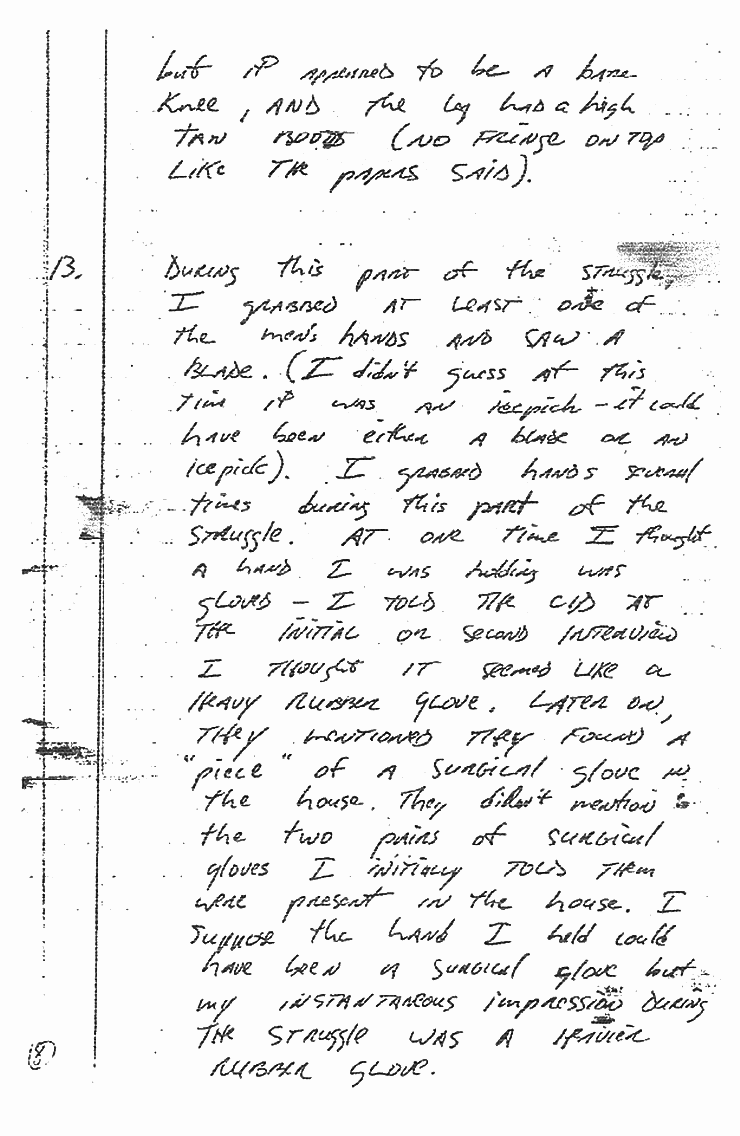 but it appeared to be a bare
knee, AND the leg had a high
TAN BOOTS (NO FRINGE ON TOP
LIKE THE papers SAID).
13. DURING this part of the struggle,
I GRABBED AT LEAST one of
the men's hands AND SAW A
BLADE. (I didn't guess AT this
Time it was AN icepick - it could
have been either A blade or AN
icepick). I GRABBED hands several
times during this part of the
struggle. AT one time I thought
A hand I was holding was
gloved - I TOLD THE CID AT
THE INITIAL OR SECOND INTERVIEW
I THOUGHT IT seemed LIKE a
HEAVY RUBBER GLOVE. LATER ON,
THEY MENTIONED THEY FOUND A
"piece" of A SURGICAL glove in
the house. They didn't mention
the two pairs of SURGICAL
gloves I INITIALLY TOLD THEM
were present in the house. I
suppose the hand I held could
have been a surgical glove but
my INSTANTANEOUS impression DURING
THE STRUGGLE WAS A HEAVIER
RUBBER GLOVE.
(8)